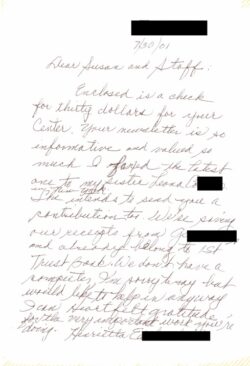 7/30/01
Dear Susan and Staff:
Enclosed is a check
for thirty dollars for your
Center. Your newsletter is so
informative and valued so
much I faxed the latest
one to my sister Leona
in New York
She intends to send you a
contribution too. We're saving
our receipts from G
and already belong to 1st
Trust Bank. We don't have a
computer, I'm sorry to say but
would like to help in anyway
I can. Heartfelt gratitude
for the very important work you're
doing. Henrietta